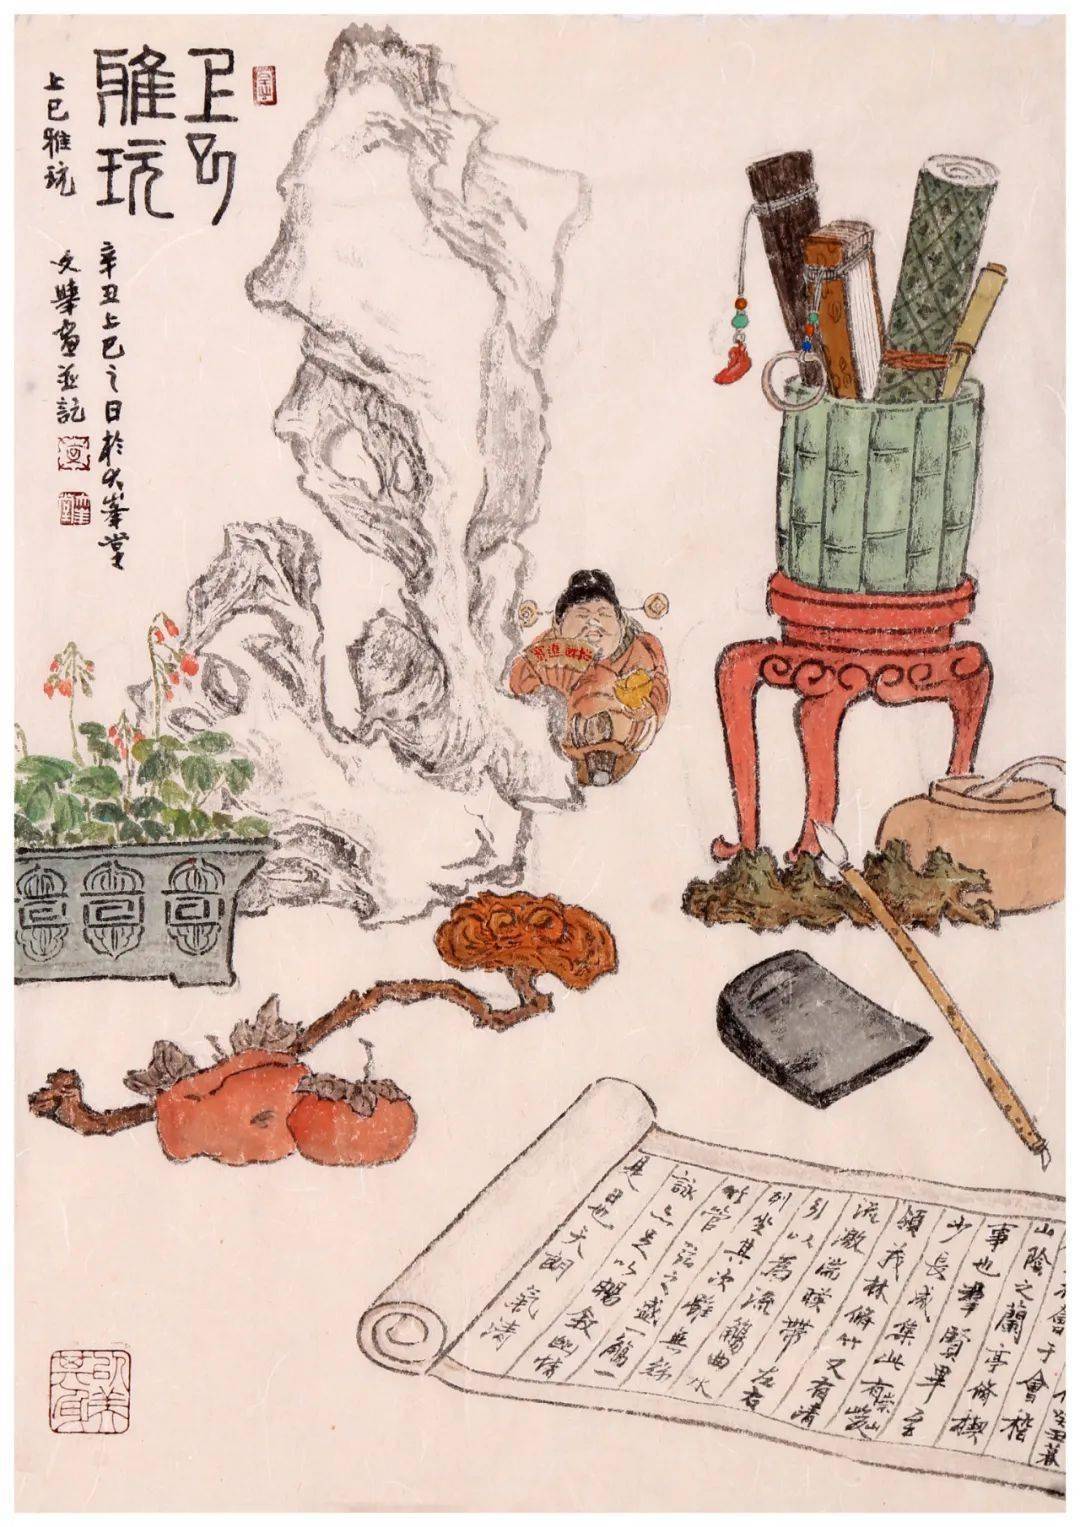 上巳
雅玩
上巳雅玩
辛丑上巳之日於大峯堂
畫並記
招財進寶
癸丑暮
會于會稽
山陰之蘭亭脩禊
事也羣賢畢至
少長咸集此有崇山峻
領茂林脩竹又有清
流激湍暎帶左右
引以為流觴曲水
列坐其次雖無絲
竹管弦之盛一觴一
詠亦足以暢敘幽情
是日也天朗氣清